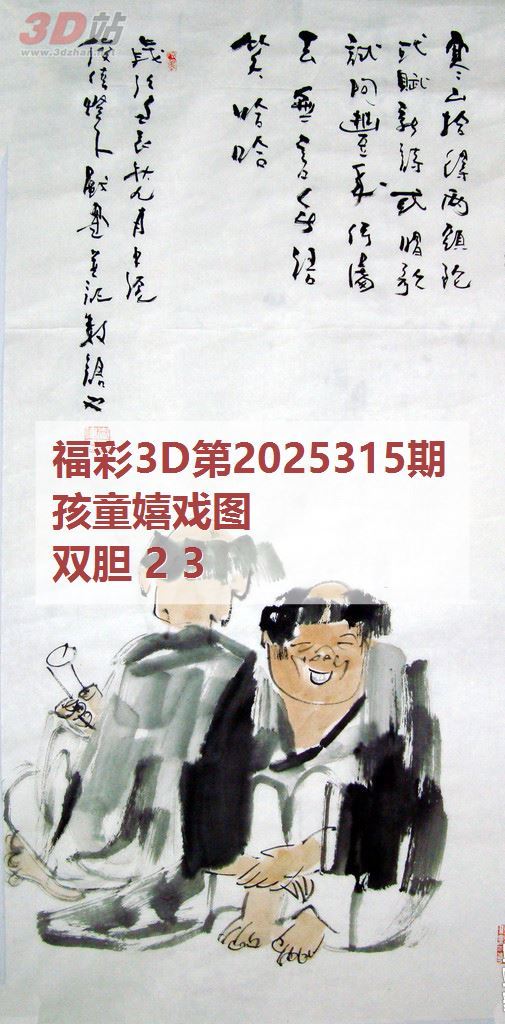 3D站
www.3dzhan.net
寒山拾得兩頭陀
或賦新詩或唱歌
試問豐干何
無言無語
笑哈哈
秋九月中浣
戲畫並記數語也
福彩3D第2025315期
孩童嬉戏图
双胆 2 3